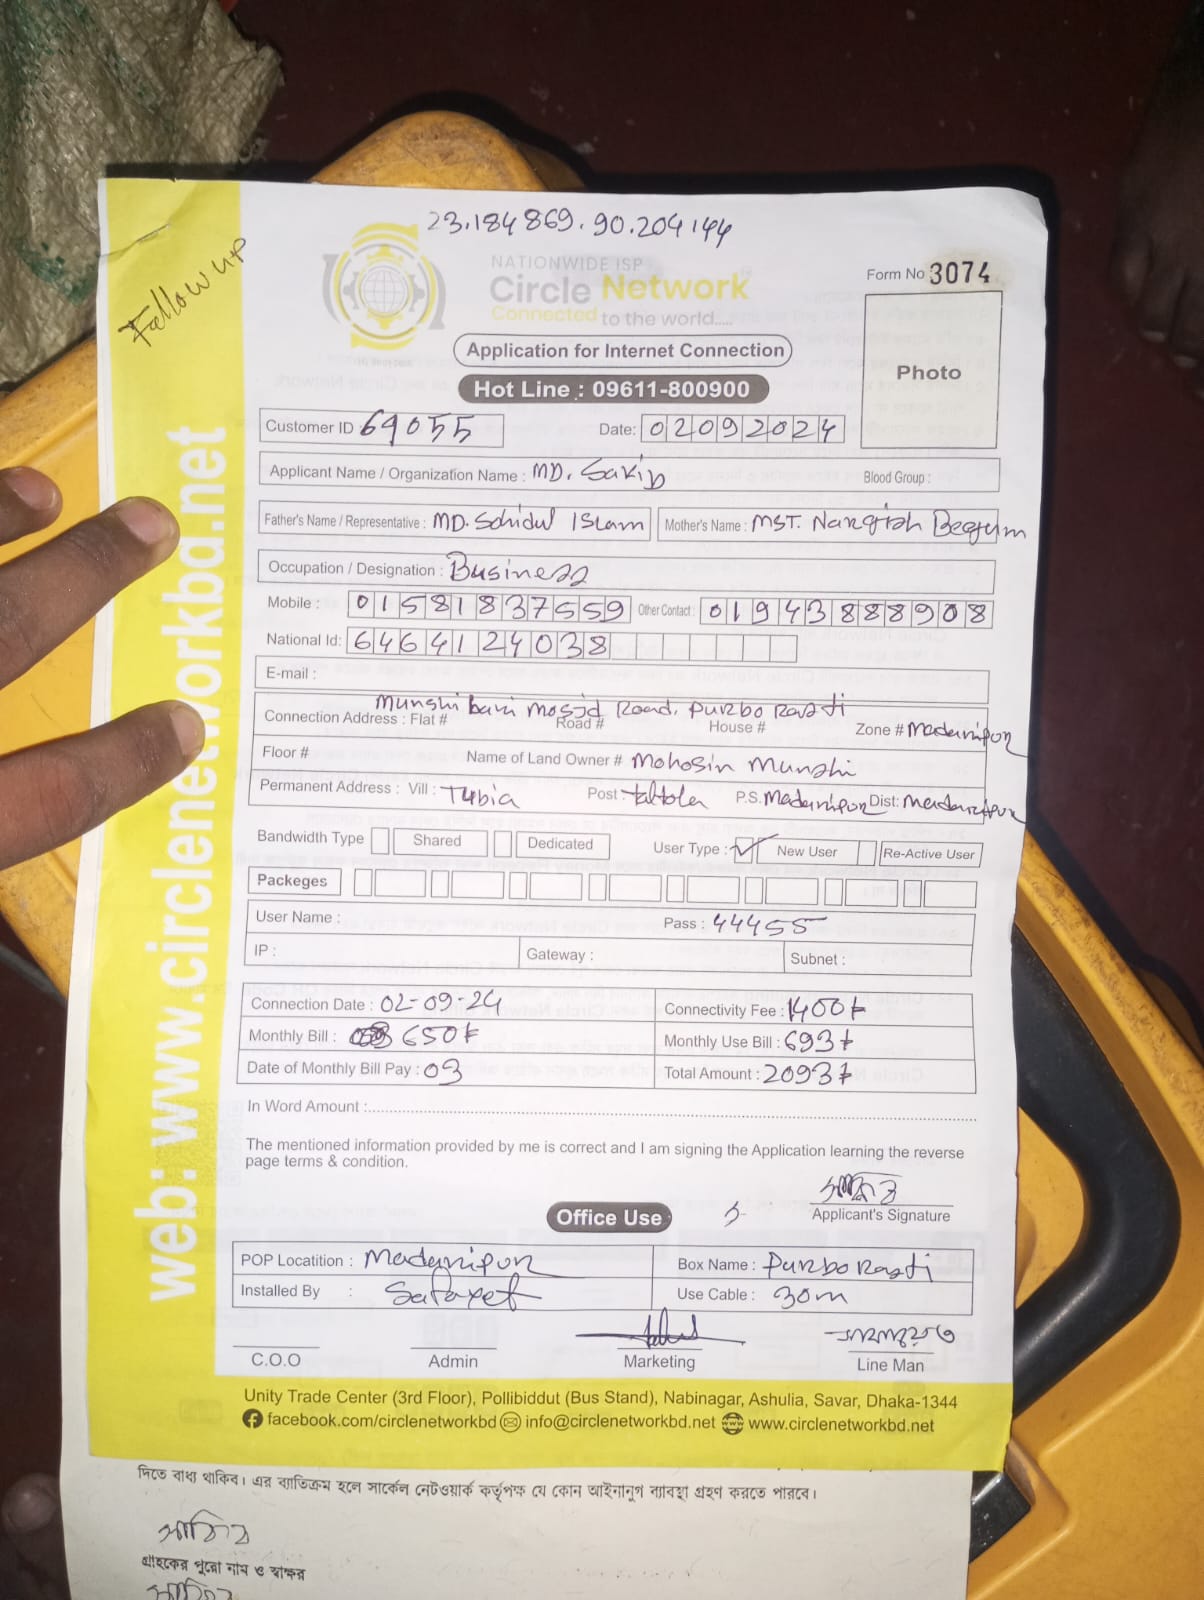 23.184869.90.204144
Follow up
NATIONWIDE ISP
Circle Network
Connected to the world.....
Form No 3074
Photo
Application for Internet Connection
Hot Line : 09611-800900
Customer ID 69055 Date: 02092024
Applicant Name / Organization Name : MD. Sakib Blood Group :
Father's Name / Representative : MD. Sohidul Islam Mother's Name : MST. Nargish Begum
Occupation / Designation : Business
Mobile : 01581837559 Other Contact : 01943888908
National Id: 6464124038
E-mail :
Munshi bari Mosjid Road, Purbo Rasti
Connection Address : Flat # Road # House # Zone # Madaripur
Floor # Name of Land Owner # Mohosin Munshi
Permanent Address : Vill : Tubia Post : taltola P.S. Madaripur Dist: Madaripur
Bandwidth Type Shared Dedicated User Type : ✓ New User Re-Active User
Packeges
User Name : Pass : 44455
IP : Gateway : Subnet :
Connection Date : 02-09-24 Connectivity Fee : 1400t
Monthly Bill : 650t Monthly Use Bill : 693t
Date of Monthly Bill Pay : 03 Total Amount : 2093t
In Word Amount :
The mentioned information provided by me is correct and I am signing the Application learning the reverse
page terms & condition.
সাকিব
Applicant's Signature
Office Use
POP Locatition : Madaripur Box Name : Purbo Rasti
Installed By : Safayet Use Cable : 30m
C.O.O Admin Marketing Line Man
Unity Trade Center (3rd Floor), Pollibiddut (Bus Stand), Nabinagar, Ashulia, Savar, Dhaka-1344
facebook.com/circlenetworkbd info@circlenetworkbd.net www.circlenetworkbd.net
web: www.circlenetworkbd.net
দিতে বাধ্য থাকিব। এর ব্যতিক্রম হলে সার্কেল নেটওয়ার্ক কর্তৃপক্ষ যে কোন আইনানুগ ব্যাবস্থা গ্রহণ করতে পারবে।
সাকিব
গ্রাহকের পুরো নাম ও স্বাক্ষর
সাকিব